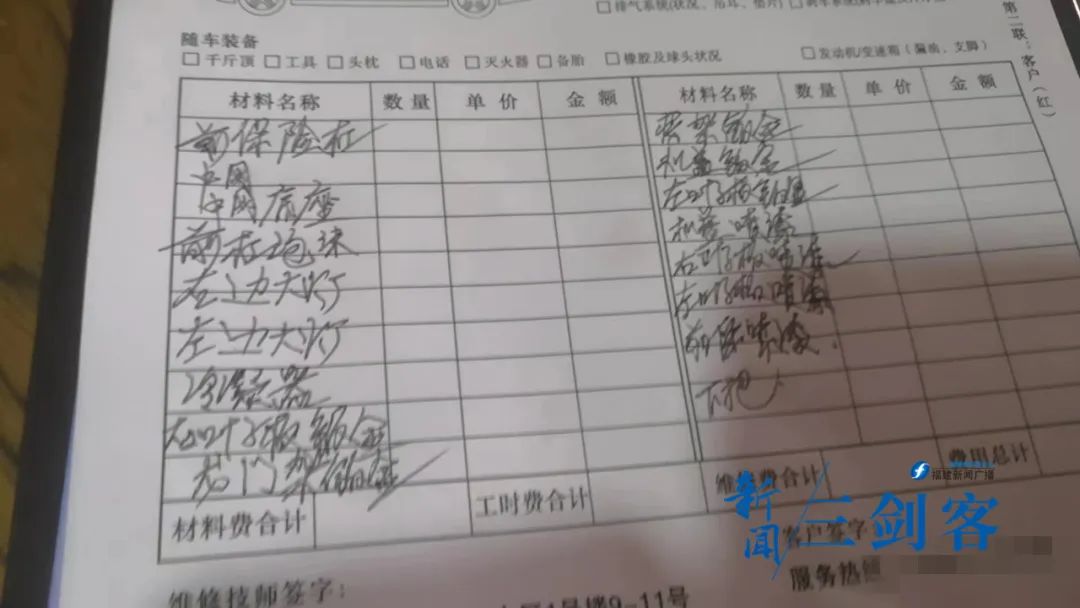 排气系统(状况、吊耳、垫片)
随车装备
千斤顶 工具 头枕 电话 灭火器 备胎 橡胶及球头状况 发动机/变速箱(漏油、支脚)
第二联:客户(红)
材料名称 数量 单价 金额 材料名称 数量 单价 金额
前保险杠
中网 机盖钣金
中网底座 左叶子板钣金
机盖喷漆
左边大灯 右叶子板喷漆
左边大灯 左叶子板喷漆
冷凝器 前保喷漆
钣金
龙门架钣金
材料费合计 工时费合计 维修费合计 费用总计
福建新闻广播
新闻三剑客
维修技师签字: 客户签字
服务热
号楼9-11号